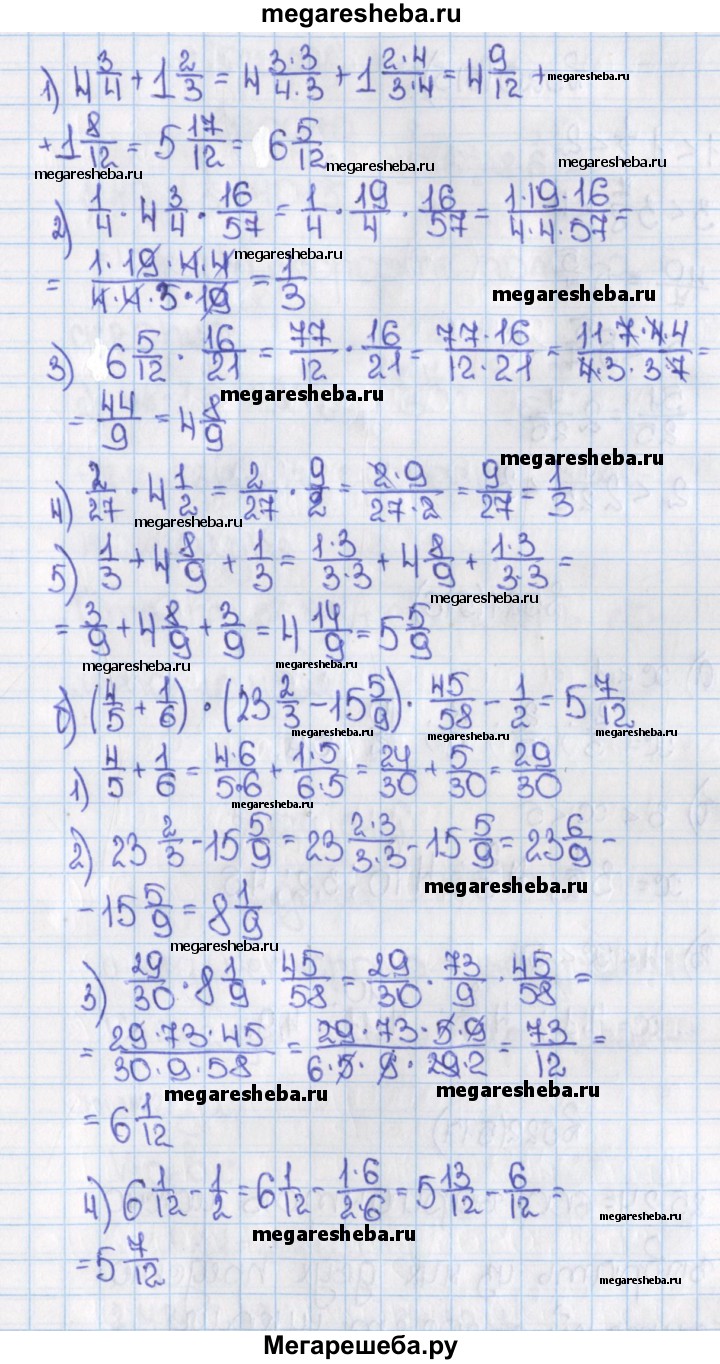 megaresheba.ru
1) 4 3/4 + 1 2/3 = 4 3·3/4·3 + 1 2·4/3·4 = 4 9/12 + megaresheba.ru
+ 1 8/12 = 5 17/12 = 6 5/12
megaresheba.ru megaresheba.ru megaresheba.ru
2) 1/4 · 4 3/4 · 16/57 = 1/4 · 19/4 · 16/57 = 1·19·16/4·4·57 =
megaresheba.ru
= 1·19·4·4/4·4·3·19 = 1/3
megaresheba.ru
3) 6 5/12 · 16/21 = 77/12 · 16/21 = 77·16/12·21 = 11·7·4·4/4·3·3·7 =
megaresheba.ru
= 44/9 = 4 8/9
megaresheba.ru
4) 2/27 · 4 1/2 = 2/27 · 9/2 = 2·9/27·2 = 9/27 = 1/3
megaresheba.ru
5) 1/3 + 4 8/9 + 1/3 = 1·3/3·3 + 4 8/9 + 1·3/3·3 =
megaresheba.ru
= 3/9 + 4 8/9 + 3/9 = 4 14/9 = 5 5/9
megaresheba.ru megaresheba.ru megaresheba.ru
б) (4/5 + 1/6) · (23 2/3 - 15 5/9) · 45/58 - 1/2 = 5 7/12
megaresheba.ru megaresheba.ru megaresheba.ru
1) 4/5 + 1/6 = 4·6/5·6 + 1·5/6·5 = 24/30 + 5/30 = 29/30
megaresheba.ru
2) 23 2/3 - 15 5/9 = 23 2·3/3·3 - 15 5/9 = 23 6/9 -
megaresheba.ru
- 15 5/9 = 8 1/9
megaresheba.ru
3) 29/30 · 8 1/9 · 45/58 = 29/30 · 73/9 · 45/58 =
= 29·73·45/30·9·58 = 29·73·5·9/6·5·9·29·2 = 73/12 =
megaresheba.ru megaresheba.ru
= 6 1/12
4) 6 1/12 - 1/2 = 6 1/12 - 1·6/2·6 = 5 13/12 - 6/12 =
megaresheba.ru megaresheba.ru
= 5 7/12
megaresheba.ru
Мегарешеба.ру